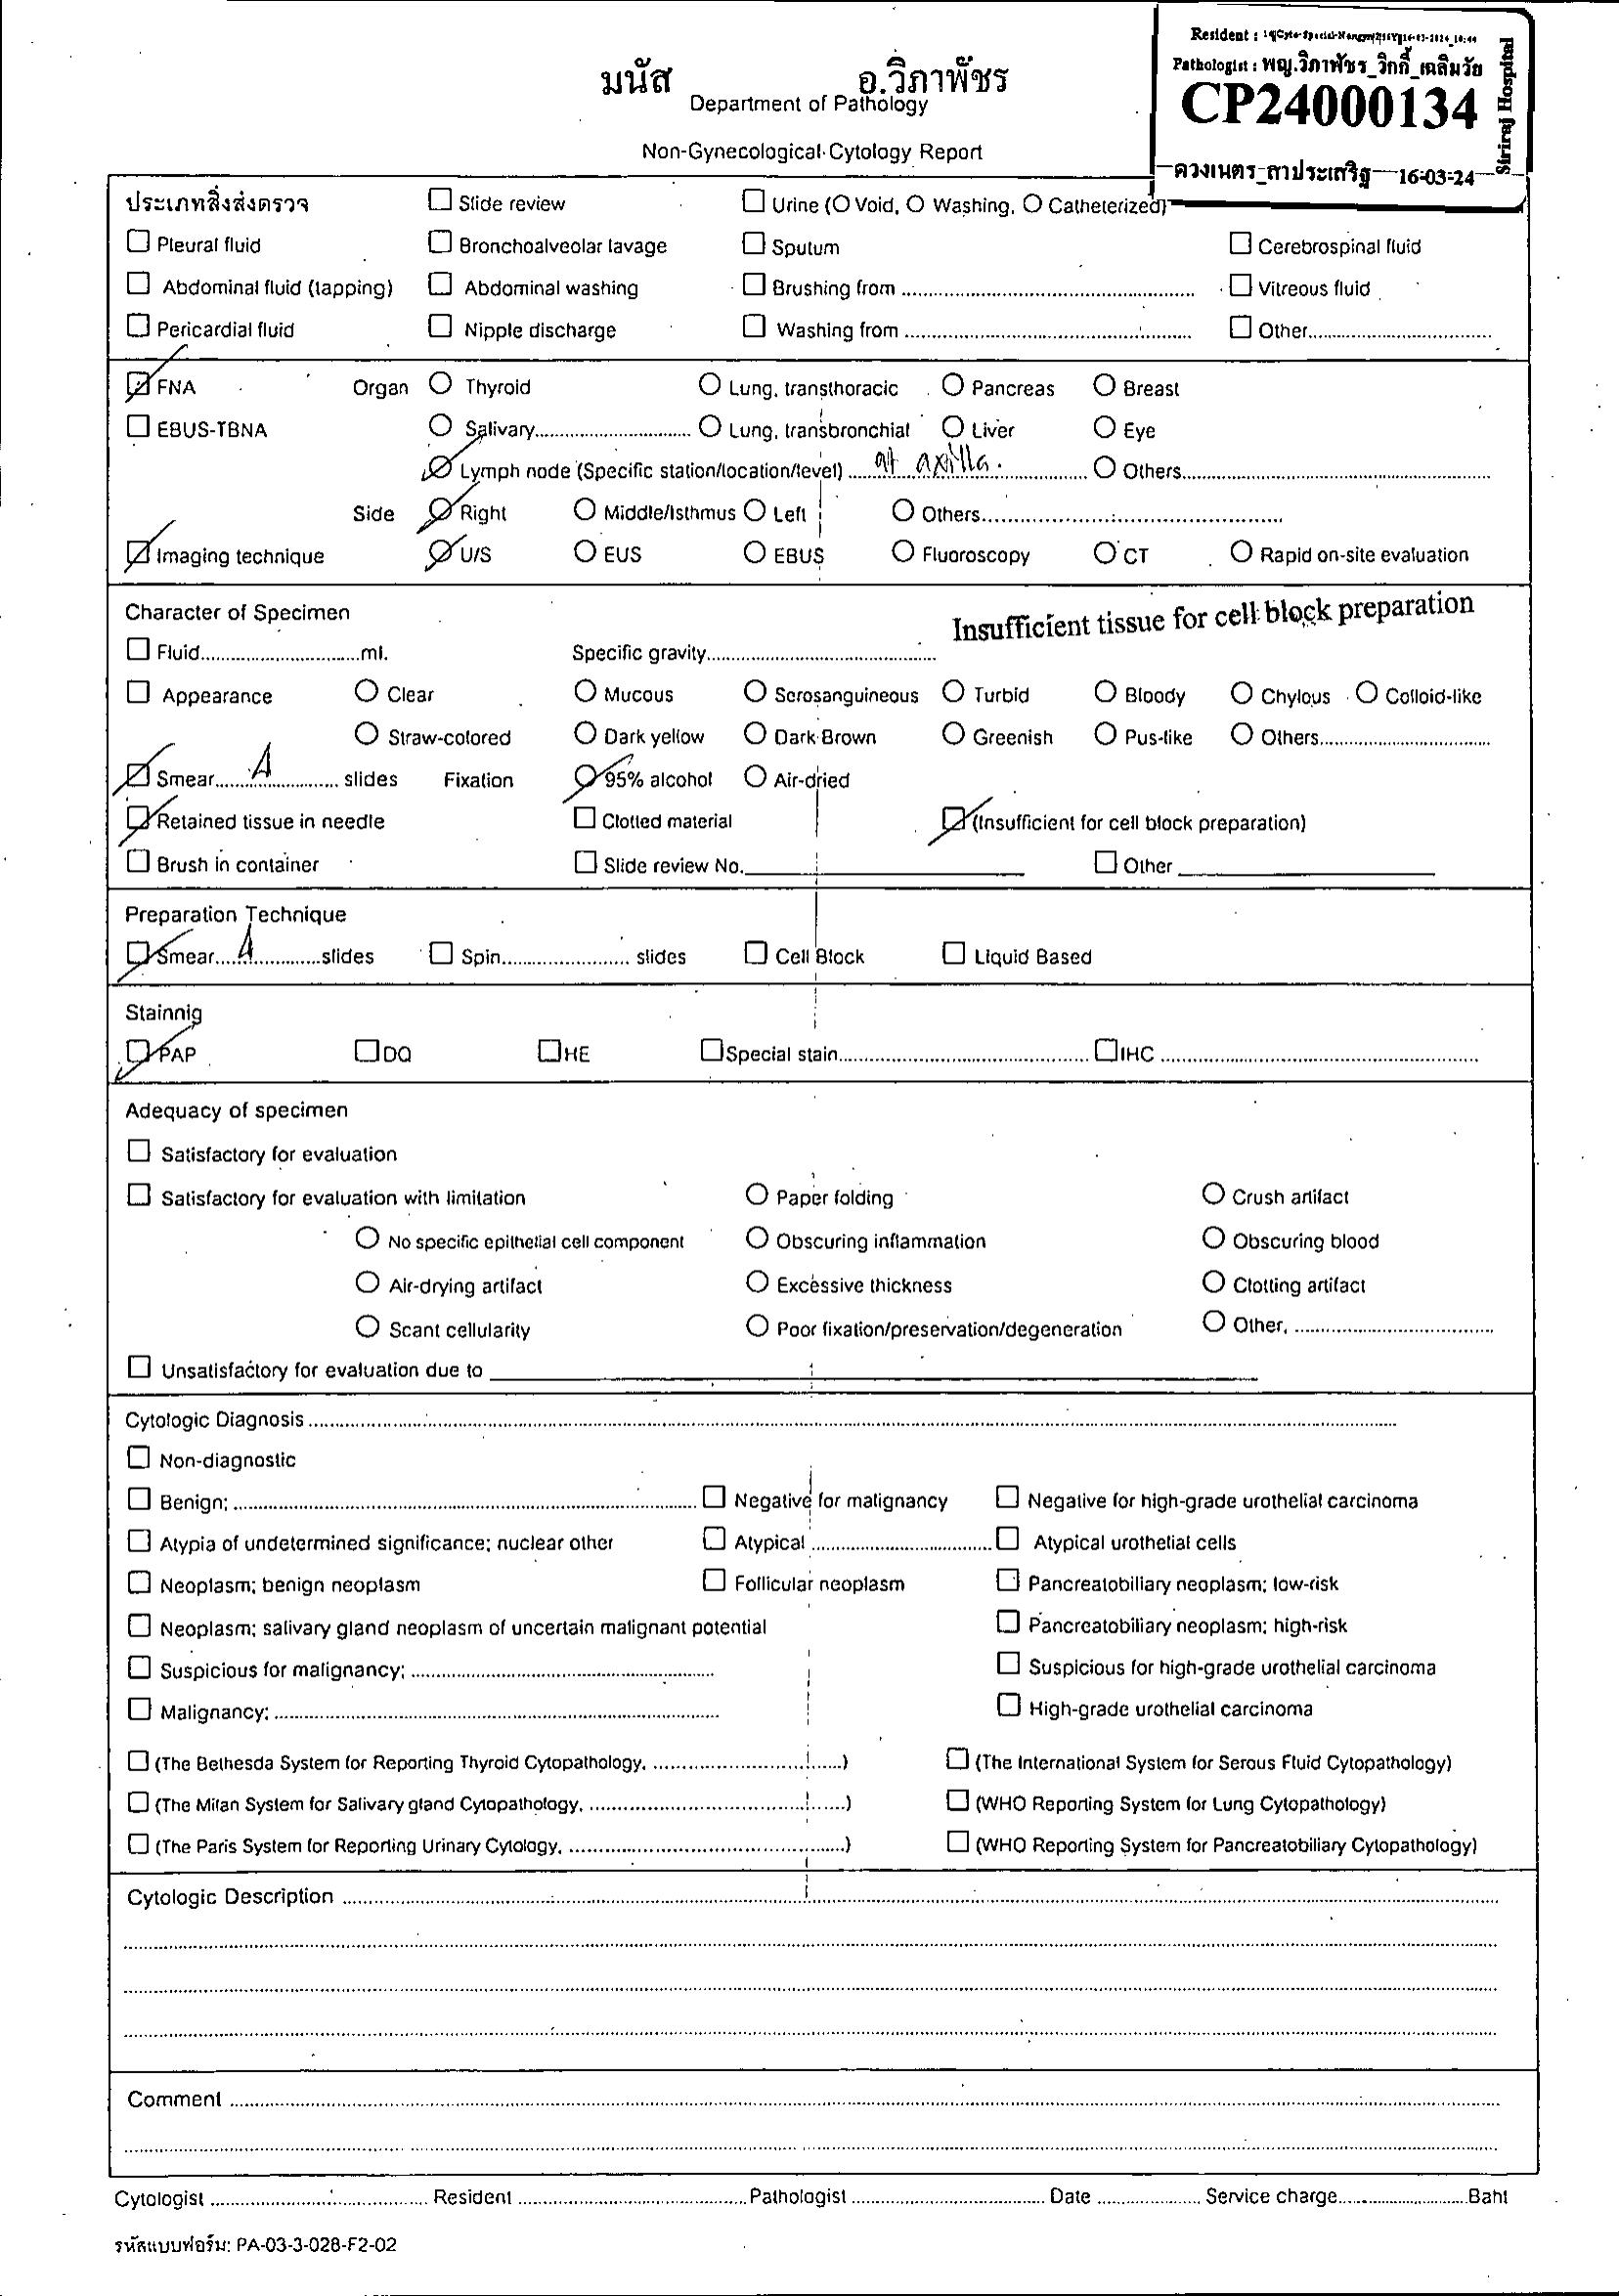 มนัส อ.วิภาพัชร
Department of Pathology
Non-Gynecological Cytology Report
Resident :
Pathologist : พญ.วิภาพัชร_วิกกี้_เฉลิมวัย
CP24000134
ดวงเนตร_ถาประเสริฐ 16-03-24
Siriraj Hospital
ประเภทสิ่งส่งตรวจ Slide review Urine (O Void, O Washing, O Catheterized)
Pleural fluid Bronchoalveolar lavage Sputum Cerebrospinal fluid
Abdominal fluid (tapping) Abdominal washing Brushing from Vitreous fluid
Pericardial fluid Nipple discharge Washing from Other
FNA Organ Thyroid Lung, transthoracic Pancreas Breast
EBUS-TBNA Salivary Lung, transbronchial Liver Eye
Lymph node (Specific station/location/level) at axilla. Others
Side Right Middle/Isthmus Left Others
Imaging technique U/S EUS EBUS Fluoroscopy CT Rapid on-site evaluation
Character of Specimen Insufficient tissue for cell block preparation
Fluid ml. Specific gravity
Appearance Clear Mucous Serosanguineous Turbid Bloody Chylous Colloid-like
Straw-colored Dark yellow Dark Brown Greenish Pus-like Others
Smear slides Fixation 95% alcohol Air-dried
Retained tissue in needle Clotted material (Insufficient for cell block preparation)
Brush in container Slide review No. Other
Preparation Technique
Smear slides Spin slides Cell Block Liquid Based
Stainnig
PAP DQ HE Special stain IHC
Adequacy of specimen
Satisfactory for evaluation
Satisfactory for evaluation with limitation Paper folding Crush artifact
No specific epithelial cell component Obscuring inflammation Obscuring blood
Air-drying artifact Excessive thickness Clotting artifact
Scant cellularity Poor fixation/preservation/degeneration Other,
Unsatisfactory for evaluation due to
Cytologic Diagnosis
Non-diagnostic
Benign: Negative for malignancy Negative for high-grade urothelial carcinoma
Atypia of undetermined significance; nuclear other Atypical Atypical urothelial cells
Neoplasm; benign neoplasm Follicular neoplasm Pancreatobiliary neoplasm; low-risk
Neoplasm; salivary gland neoplasm of uncertain malignant potential Pancreatobiliary neoplasm; high-risk
Suspicious for malignancy; Suspicious for high-grade urothelial carcinoma
Malignancy: High-grade urothelial carcinoma
(The Bethesda System for Reporting Thyroid Cytopathology, ) (The International System for Serous Fluid Cytopathology)
(The Milan System for Salivary gland Cytopathology, ) (WHO Reporting System for Lung Cytopathology)
(The Paris System for Reporting Urinary Cytology, ) (WHO Reporting System for Pancreatobiliary Cytopathology)
Cytologic Description
Comment
Cytologist Resident Pathologist Date Service charge Baht
รหัสแบบฟอร์ม: PA-03-3-028-F2-02